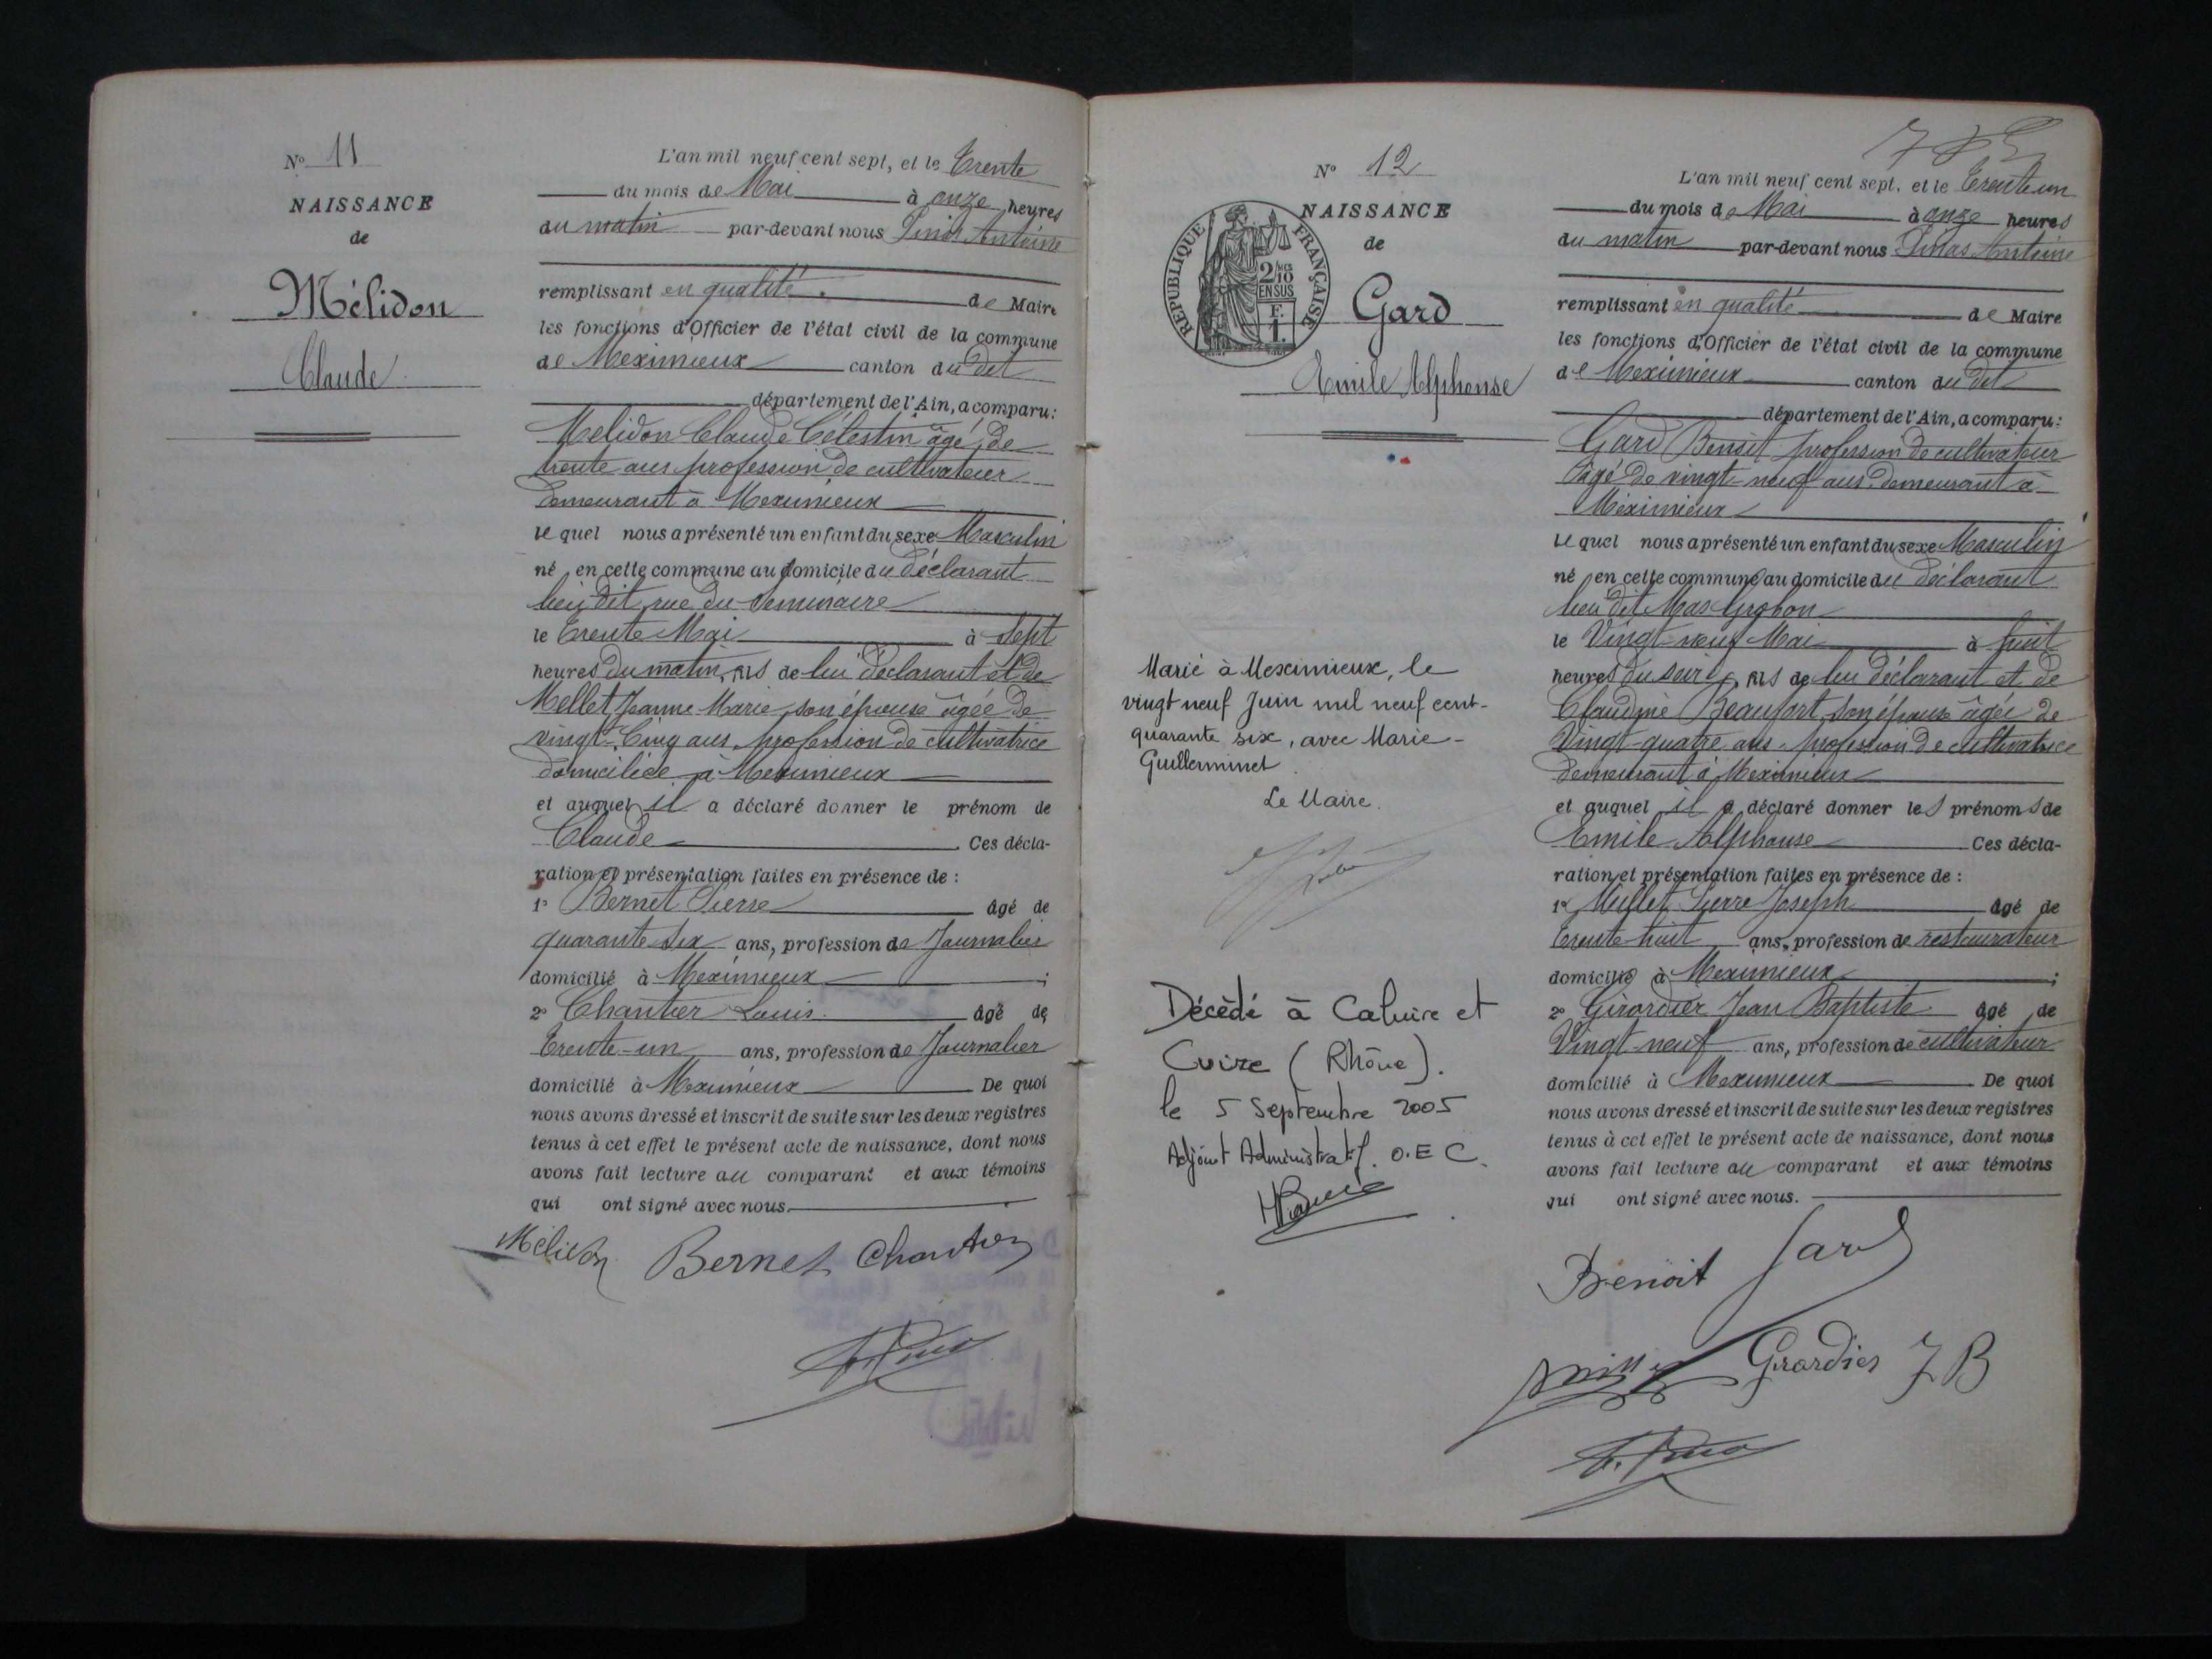 Nº 11
NAISSANCE
de
Mélidon
Claude
L'an mil neuf cent sept, et le Trente
du mois de Mai à onze heures
du matin par-devant nous Antoine
remplissant en qualité de Maire
les fonctions d'Officier de l'état civil de la commune
de Meximieux canton du dit
département de l'Ain, a comparu:
Mélidon Claude Célestin âgé de
trente ans profession de cultivateur
demeurant à Meximieux
le quel nous a présenté un enfant du sexe Masculin
né en cette commune au domicile du déclarant
lieu dit rue du Séminaire
le Trente Mai à Sept
heures du matin, fils de lui déclarant et de
Mellet Jeanne Marie son épouse âgée de
vingt-Cinq ans profession de cultivatrice
domiciliée à Meximieux
et auquel il a déclaré donner le prénom de
Claude Ces décla-
ration et présentation faites en présence de :
1º Bernet Pierre âgé de
quarante six ans, profession de Journalier
domicilié à Meximieux ;
2º Chantier Louis âgé de
Trente-un ans, profession de Journalier
domicilié à Meximieux De quoi
nous avons dressé et inscrit de suite sur les deux registres
tenus à cet effet le présent acte de naissance, dont nous
avons fait lecture au comparant et aux témoins
qui ont signé avec nous.
Mélidon Bernet Chantier
Nº 12
NAISSANCE
de
Gard
Emile Alphonse
REPUBLIQUE FRANÇAISE
2/10 MES
EN SUS
F.
1.
Marié à Meximieux, le
vingt neuf Juin mil neuf cent-
quarante six, avec Marie-
Guillerminet
Le Maire.
Décédé à Caluire et
Cuire (Rhône).
le 5 Septembre 2005
Adjoint Administratif. O.E C.
L'an mil neuf cent sept, et le Trente un
du mois de Mai à onze heures
du matin par-devant nous Antoine
remplissant en qualité de Maire
les fonctions d'Officier de l'état civil de la commune
de Meximieux canton du dit
département de l'Ain, a comparu:
Gard Benoit profession de cultivateur
âgé de vingt-neuf ans demeurant à
Meximieux
le quel nous a présenté un enfant du sexe Masculin
né en cette commune au domicile du déclarant
lieu dit Mas Grobon
le Vingt-neuf Mai à huit
heures du soir, fils de lui déclarant et de
Claudine Beaufort, son épouse âgée de
Vingt-quatre ans profession de cultivatrice
demeurant à Meximieux
et auquel il a déclaré donner les prénoms de
Emile Alphonse Ces décla-
ration et présentation faites en présence de :
1º Pierre Joseph âgé de
Trente-huit ans, profession de restaurateur
domicilié à Meximieux ;
2º Girardier Jean Baptiste âgé de
Vingt-neuf ans, profession de cultivateur
domicilié à Meximieux De quoi
nous avons dressé et inscrit de suite sur les deux registres
tenus à cet effet le présent acte de naissance, dont nous
avons fait lecture au comparant et aux témoins
qui ont signé avec nous.
Benoit Gard
Girardier J B